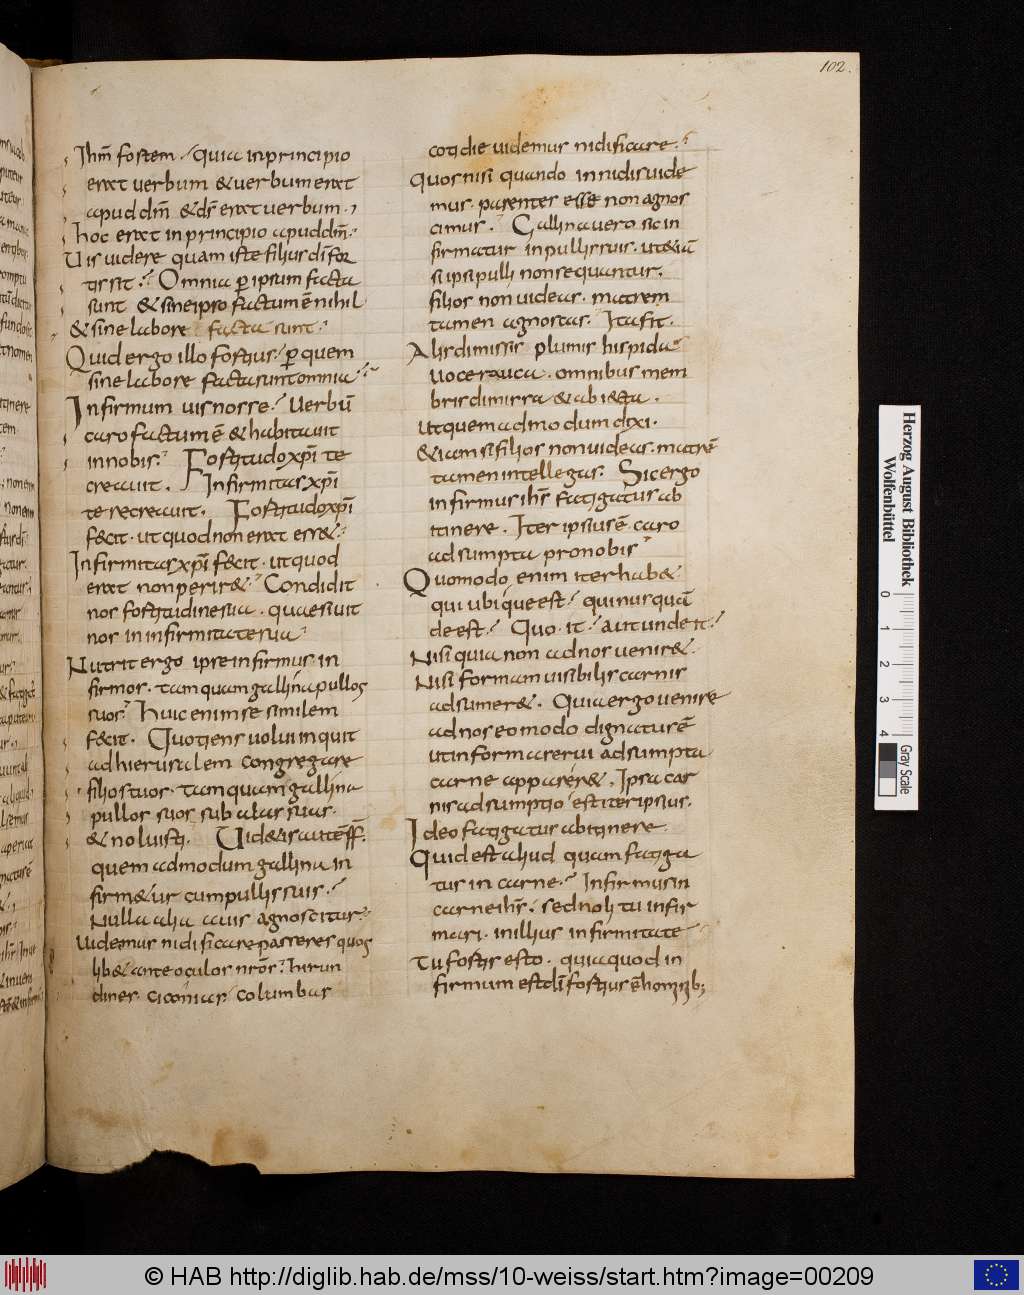 102.
Ihm̄ fortem. Quia inprincipio
erat uerbum & uerbum erat
apud dm̄ & ds̄ erat uerbum.
hoc erat in principio apud dm̄.
Uis uidere quam iste filius dī for
tis sit? Omnia ꝑ ipsum facta
sunt & sineipso factum ē nihil
& sine labore facta sunt.
Quid ergo illo fortius. ꝑ quem
sine labore facta sunt omnia?
Infirmum uis nosse? Uerbū
caro factum ē & habitauit
innobis. Fortitudo xp̄i te
creauit. Infirmitas xp̄i
te recreauit. Fortitudo xp̄i
fecit. ut quod non erat ess&.
Infirmitas xp̄i fecit. ut quod
erat non perir&. Condidit
nos fortitudine sua. quaesiuit
nos in infirmitate sua
Nutrit ergo ipse infirmus in
firmos. tamquam gallina pullos
suos. Huic enim se similem
fecit. Quotiens uolui inquit
ad hierusalem congregare
filios tuos. tamquam gallina
pullos suos sub alas suas.
& noluisti. Uidetis autē ff̄.
quem ad modum gallina in
firm&ur cum pullis suis.
Nulla alia auis agnoscitur.
Uidemus nidificare passeres quos
lib& ante oculos nrōs. hirun
dines. ciconias. columbas
cotidie uidemus nidificare.
Quos nisi quando in nidis uide
mus. parentes esse non agnos
cimus. Gallina uero sic in
firmatur in pullis suis. ut &iā
si ipsi pulli non sequantur.
filios non uideas. matrem
tamen agnoscas. Ita fit.
Alis dimissis plumis hispida
uoce rauca. omnibus mem
bris dimissa & abiecta.
Ut quem ad modum dixi.
&iam si filios non uideas. matrē
tamen intellegas. Sic ergo
infirmus ihs̄ fatigatus ab
itinere. Iter ipsius ē caro
adsumpta pro nobis
Quomodo enim iter hab&
qui ubique est? qui nusquā
deest? Quo it? aut unde it?
Nisi quia non ad nos uenir&.
Nisi formam uisibilis carnis
adsumer&. Quia ergo uenire
ad nos eo modo dignatus ē
ut in forma serui adsumpta
carne apparer&. Ipsa car
nis adsumptio est iter ipsius.
Ideo fatigatus ab itinere.
Quid est aliud quam fatiga
tus in carne? Infirmus in
carne ihs̄. sed noli tu infir
mari. in illius infirmitate
Tu fortis esto. quia quod in
firmum est dī fortius ē hominib;
Herzog August Bibliothek
Wolfenbüttel
0 1 2 3 4
Gray Scale
© HAB http://diglib.hab.de/mss/10-weiss/start.htm?image=00209